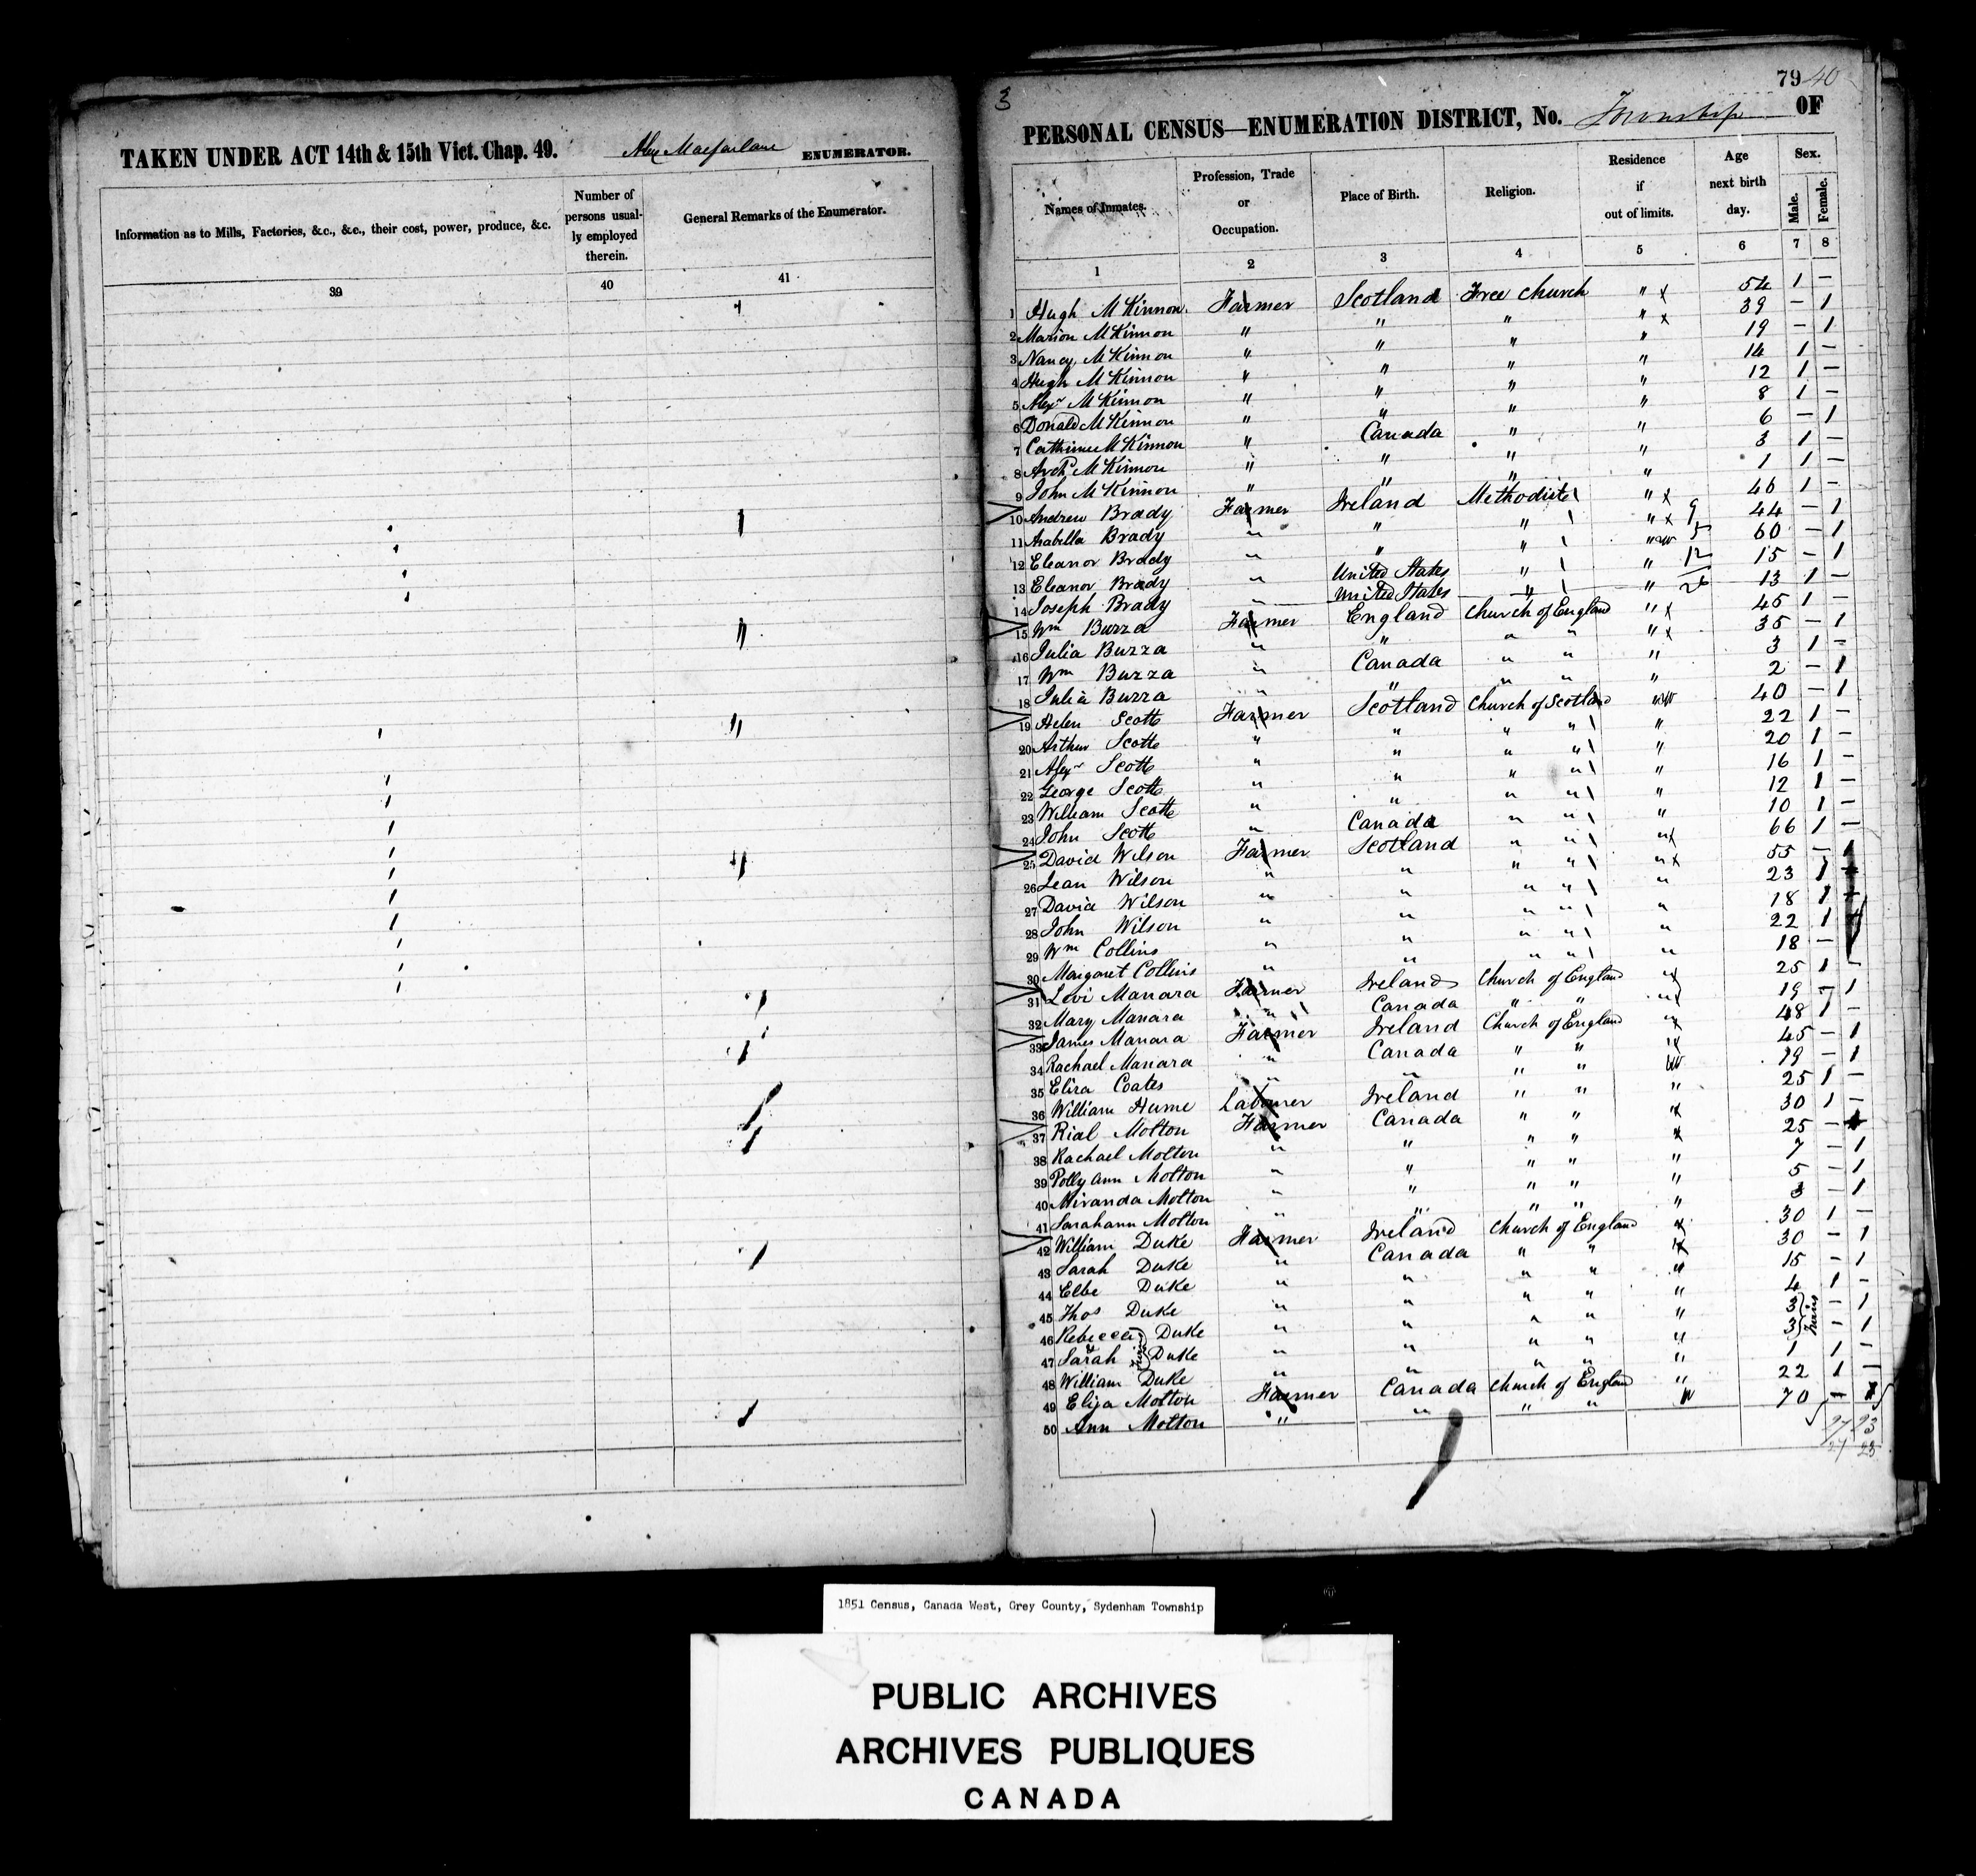 TAKEN UNDER ACT 14th & 15th Vict. Chap. 49. Alex Macfarlane ENUMERATOR.
Information as to Mills, Factories, &c., &c., their cost, power, produce, &c.
Number of persons usually employed therein.
General Remarks of the Enumerator.
39 40 41
3
79 40
PERSONAL CENSUS—ENUMERATION DISTRICT, No. Township OF
Names of Inmates. Profession, Trade or Occupation. Place of Birth. Religion. Residence if out of limits. Age next birth day. Sex. Male. Female.
1 2 3 4 5 6 7 8
1 Hugh McKinnon Farmer Scotland Free Church " x 54 1 –
2 Marion McKinnon " " " " x 39 – 1
3 Nancy McKinnon " " " " 19 – 1
4 Hugh McKinnon " " " " 14 1 –
5 Alexr McKinnon " " " " 12 1 –
6 Donald McKinnon " " " " 8 1 –
7 Catherine McKinnon " Canada " " 6 – 1
8 Archd McKinnon " " " " 3 1 –
9 John McKinnon " " " " 1 1 –
10 Andrew Brady Farmer Ireland Methodist " x 46 1 –
11 Arabella Brady " " " " x 9 44 – 1
12 Eleanor Brady " " " " W 5 60 – 1
13 Eleanor Brady " United States " " 12 15 – 1
14 Joseph Brady " United States " " 26 13 1 –
15 Wm Buzza Farmer England Church of England " x 45 1 –
16 Julia Buzza " " " " " x 35 – 1
17 Wm Buzza " Canada " " " 3 1 –
18 Julia Buzza " " " " " 2 – 1
19 Helen Scott Farmer Scotland Church of Scotland " W 40 – 1
20 Arthur Scott " " " " " 22 1 –
21 Alexr Scott " " " " " 20 1 –
22 George Scott " " " " " 16 1 –
23 William Scott " " " " " 12 1 –
24 John Scott " Canada " " " 10 1 –
25 David Wilson Farmer Scotland " " " x 66 1 –
26 Jean Wilson " " " " " x 55 – 1
27 David Wilson " " " " " 23 1
28 John Wilson " " " " " 18 1
29 Wm Collins " " " " " 22 1
30 Margaret Collins " " " " " 18 –
31 Levi Manara Farmer Ireland Church of England " x 25 1 –
32 Mary Manara " Canada " " " 19 – 1
33 James Manara Farmer Ireland Church of England " x 48 1 –
34 Rachael Manara " Canada " " " x 45 – 1
35 Eliza Coates " " " " W 19 – 1
36 William Hume Labourer Ireland " " " 25 1 –
37 Rial Molton Farmer Canada " " " x 30 1 –
38 Rachael Molton " " " " " x 25 – 1
39 Polly Ann Molton " " " " " 7 – 1
40 Miranda Molton " " " " " 5 – 1
41 Sarahann Molton " " " " " 3 – 1
42 William Duke Farmer Ireland Church of England x 30 1 –
43 Sarah Duke " Canada " " x 30 – 1
44 Elbe Duke " " " " " 15 – 1
45 Thos Duke " " " " " 4 1 –
46 Rebecca Duke " " " " " 3 – 1
47 Sarah Duke " " " " " 3 Twins – 1
48 William Duke " " " " " 1 1 –
49 Eliza Molton Farmer Canada Church of England " 22 1 –
50 Ann Molton " " " " W 70 – 1
27 23
1851 Census, Canada West, Grey County, Sydenham Township
PUBLIC ARCHIVES
ARCHIVES PUBLIQUES
CANADA